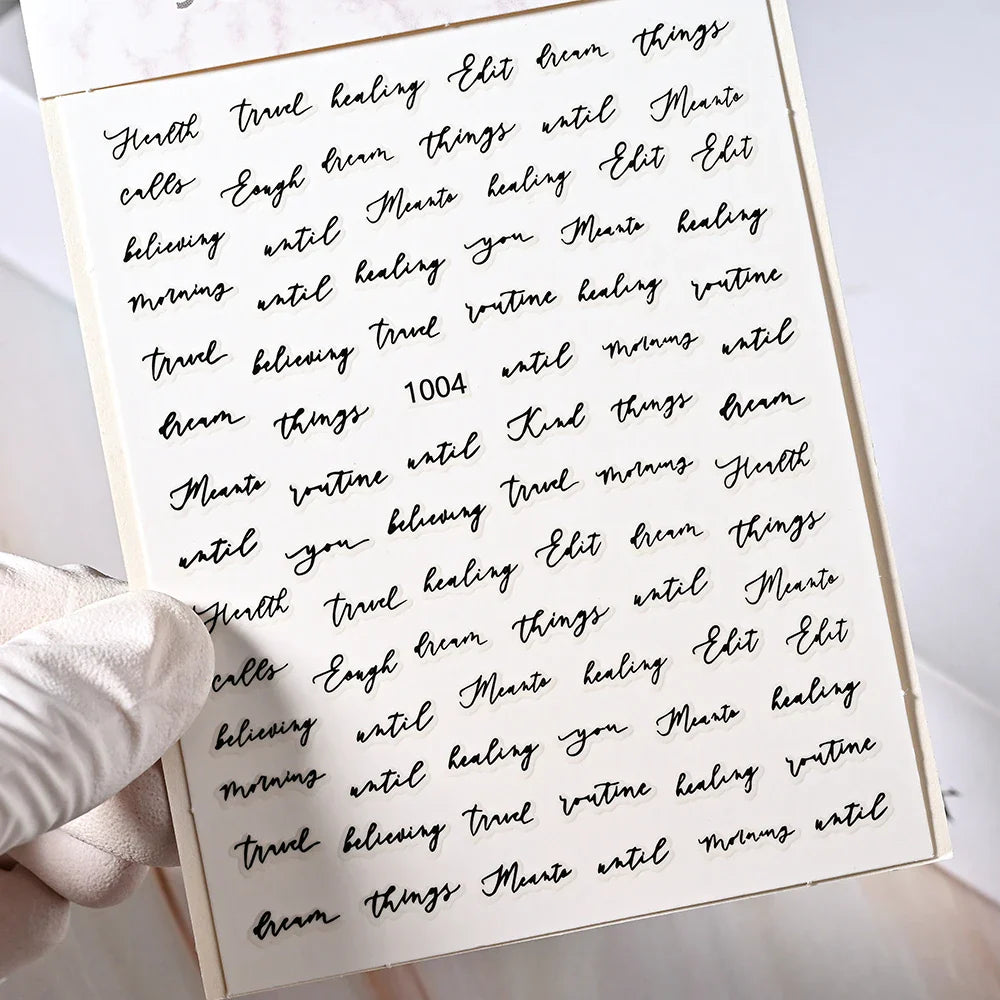 Health travel healing Edit dream things
calls Eough dream things until Meanto
believing until Meanto healing Edit Edit
morning until healing you Meanto healing
travel believing travel routine healing routine
dream things 1004 until morning until
Meanto routine until Kind things dream
until you believing travel morning Health
Health travel healing Edit dream things
calls Eough dream things until Meanto
believing until Meanto healing Edit Edit
morning until healing you Meanto healing
travel believing travel routine healing routine
dream things Meanto until morning until